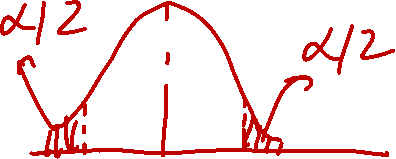 α/2
α/2